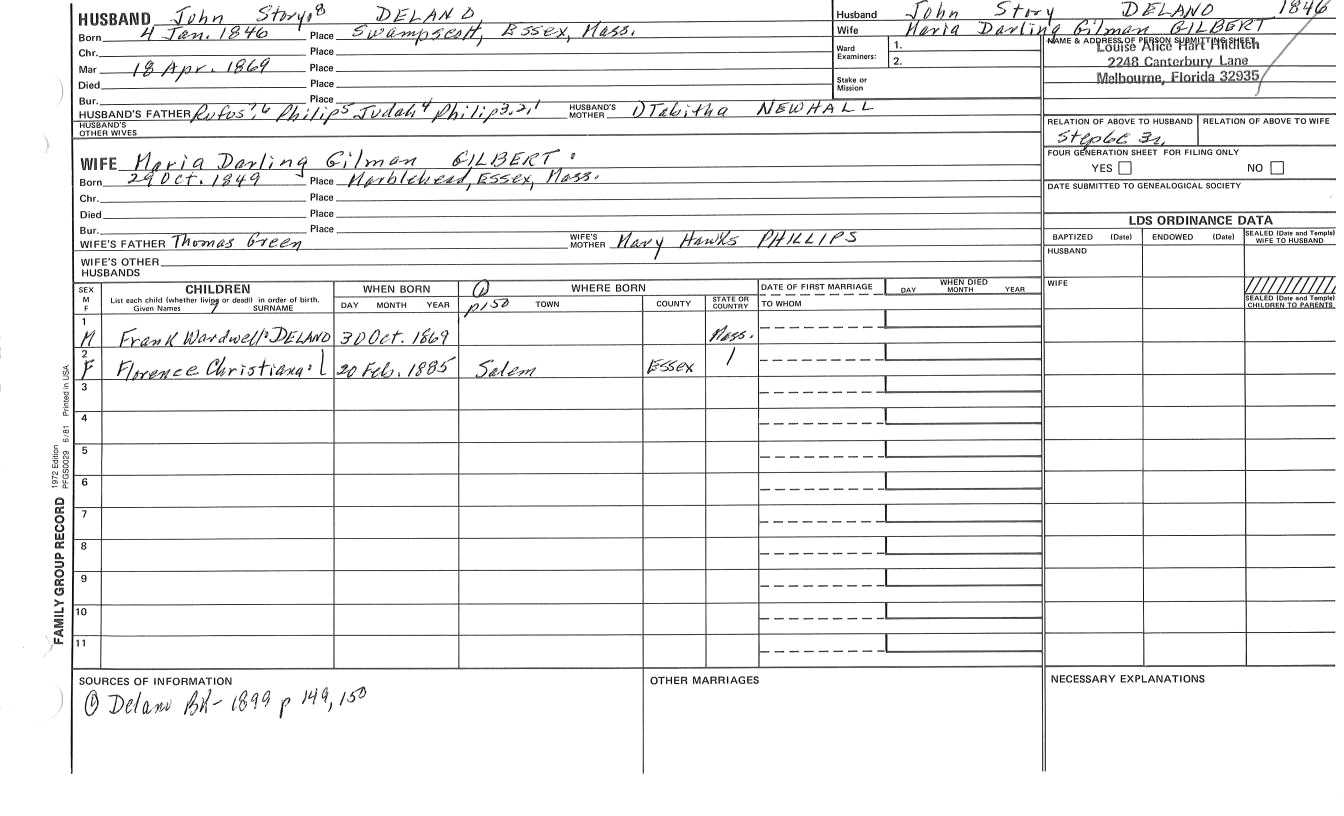 HUSBAND John Story,8 DELAND
Born 4 Jan. 1846 Place Swampscott, Essex, Mass.
Chr. Place
Mar 18 Apr. 1869 Place
Died Place
Bur. Place
HUSBAND'S FATHER Rufus,7,6 Philip5 Judah4 Philip3,2,1 HUSBAND'S MOTHER Tabitha NEWHALL
HUSBAND'S OTHER WIVES
WIFE Maria Darling Gilman GILBERT
Born 29 Oct. 1849 Place Marblehead, Essex, Mass.
Chr. Place
Died Place
Bur. Place
WIFE'S FATHER Thomas Green WIFE'S MOTHER Mary Hawks PHILLIPS
WIFE'S OTHER HUSBANDS
Husband John Story DELAND 1846
Wife Maria Darling Gilman GILBERT
Ward Examiners: 1.
2.
Stake or Mission
NAME & ADDRESS OF PERSON SUBMITTING SHEET
Louise Alice Hart
2248 Canterbury Lane
Melbourne, Florida 32935
RELATION OF ABOVE TO HUSBAND RELATION OF ABOVE TO WIFE
FOUR GENERATION SHEET FOR FILING ONLY
YES NO
DATE SUBMITTED TO GENEALOGICAL SOCIETY
LDS ORDINANCE DATA
BAPTIZED (Date) ENDOWED (Date) SEALED (Date and Temple) WIFE TO HUSBAND
HUSBAND
WIFE
SEALED (Date and Temple) CHILDREN TO PARENTS
SEX M F
CHILDREN
List each child (whether living or dead) in order of birth.
Given Names SURNAME
WHEN BORN
DAY MONTH YEAR
① p150
WHERE BORN
TOWN COUNTY STATE OR COUNTRY
DATE OF FIRST MARRIAGE
TO WHOM
WHEN DIED
DAY MONTH YEAR
1 M Frank Wardwell DELAND 3 Oct. 1869 Mass.
2 F Florence Christiana 20 Feb. 1885 Salem Essex
3
4
5
6
7
8
9
10
11
FAMILY GROUP RECORD
1972 Edition
PFGS0029 6/81 Printed in USA
SOURCES OF INFORMATION
① Delano BK- 1899 p 149, 150
OTHER MARRIAGES
NECESSARY EXPLANATIONS